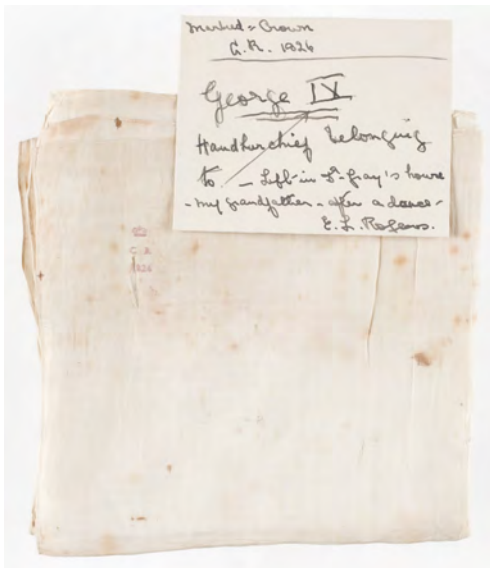 Marked = Crown
G.R. 1826
George IV
Handkerchief belonging
to - Left in Dr. Gray's house
- my grandfather - after a dance -
E. L.
G R
1826